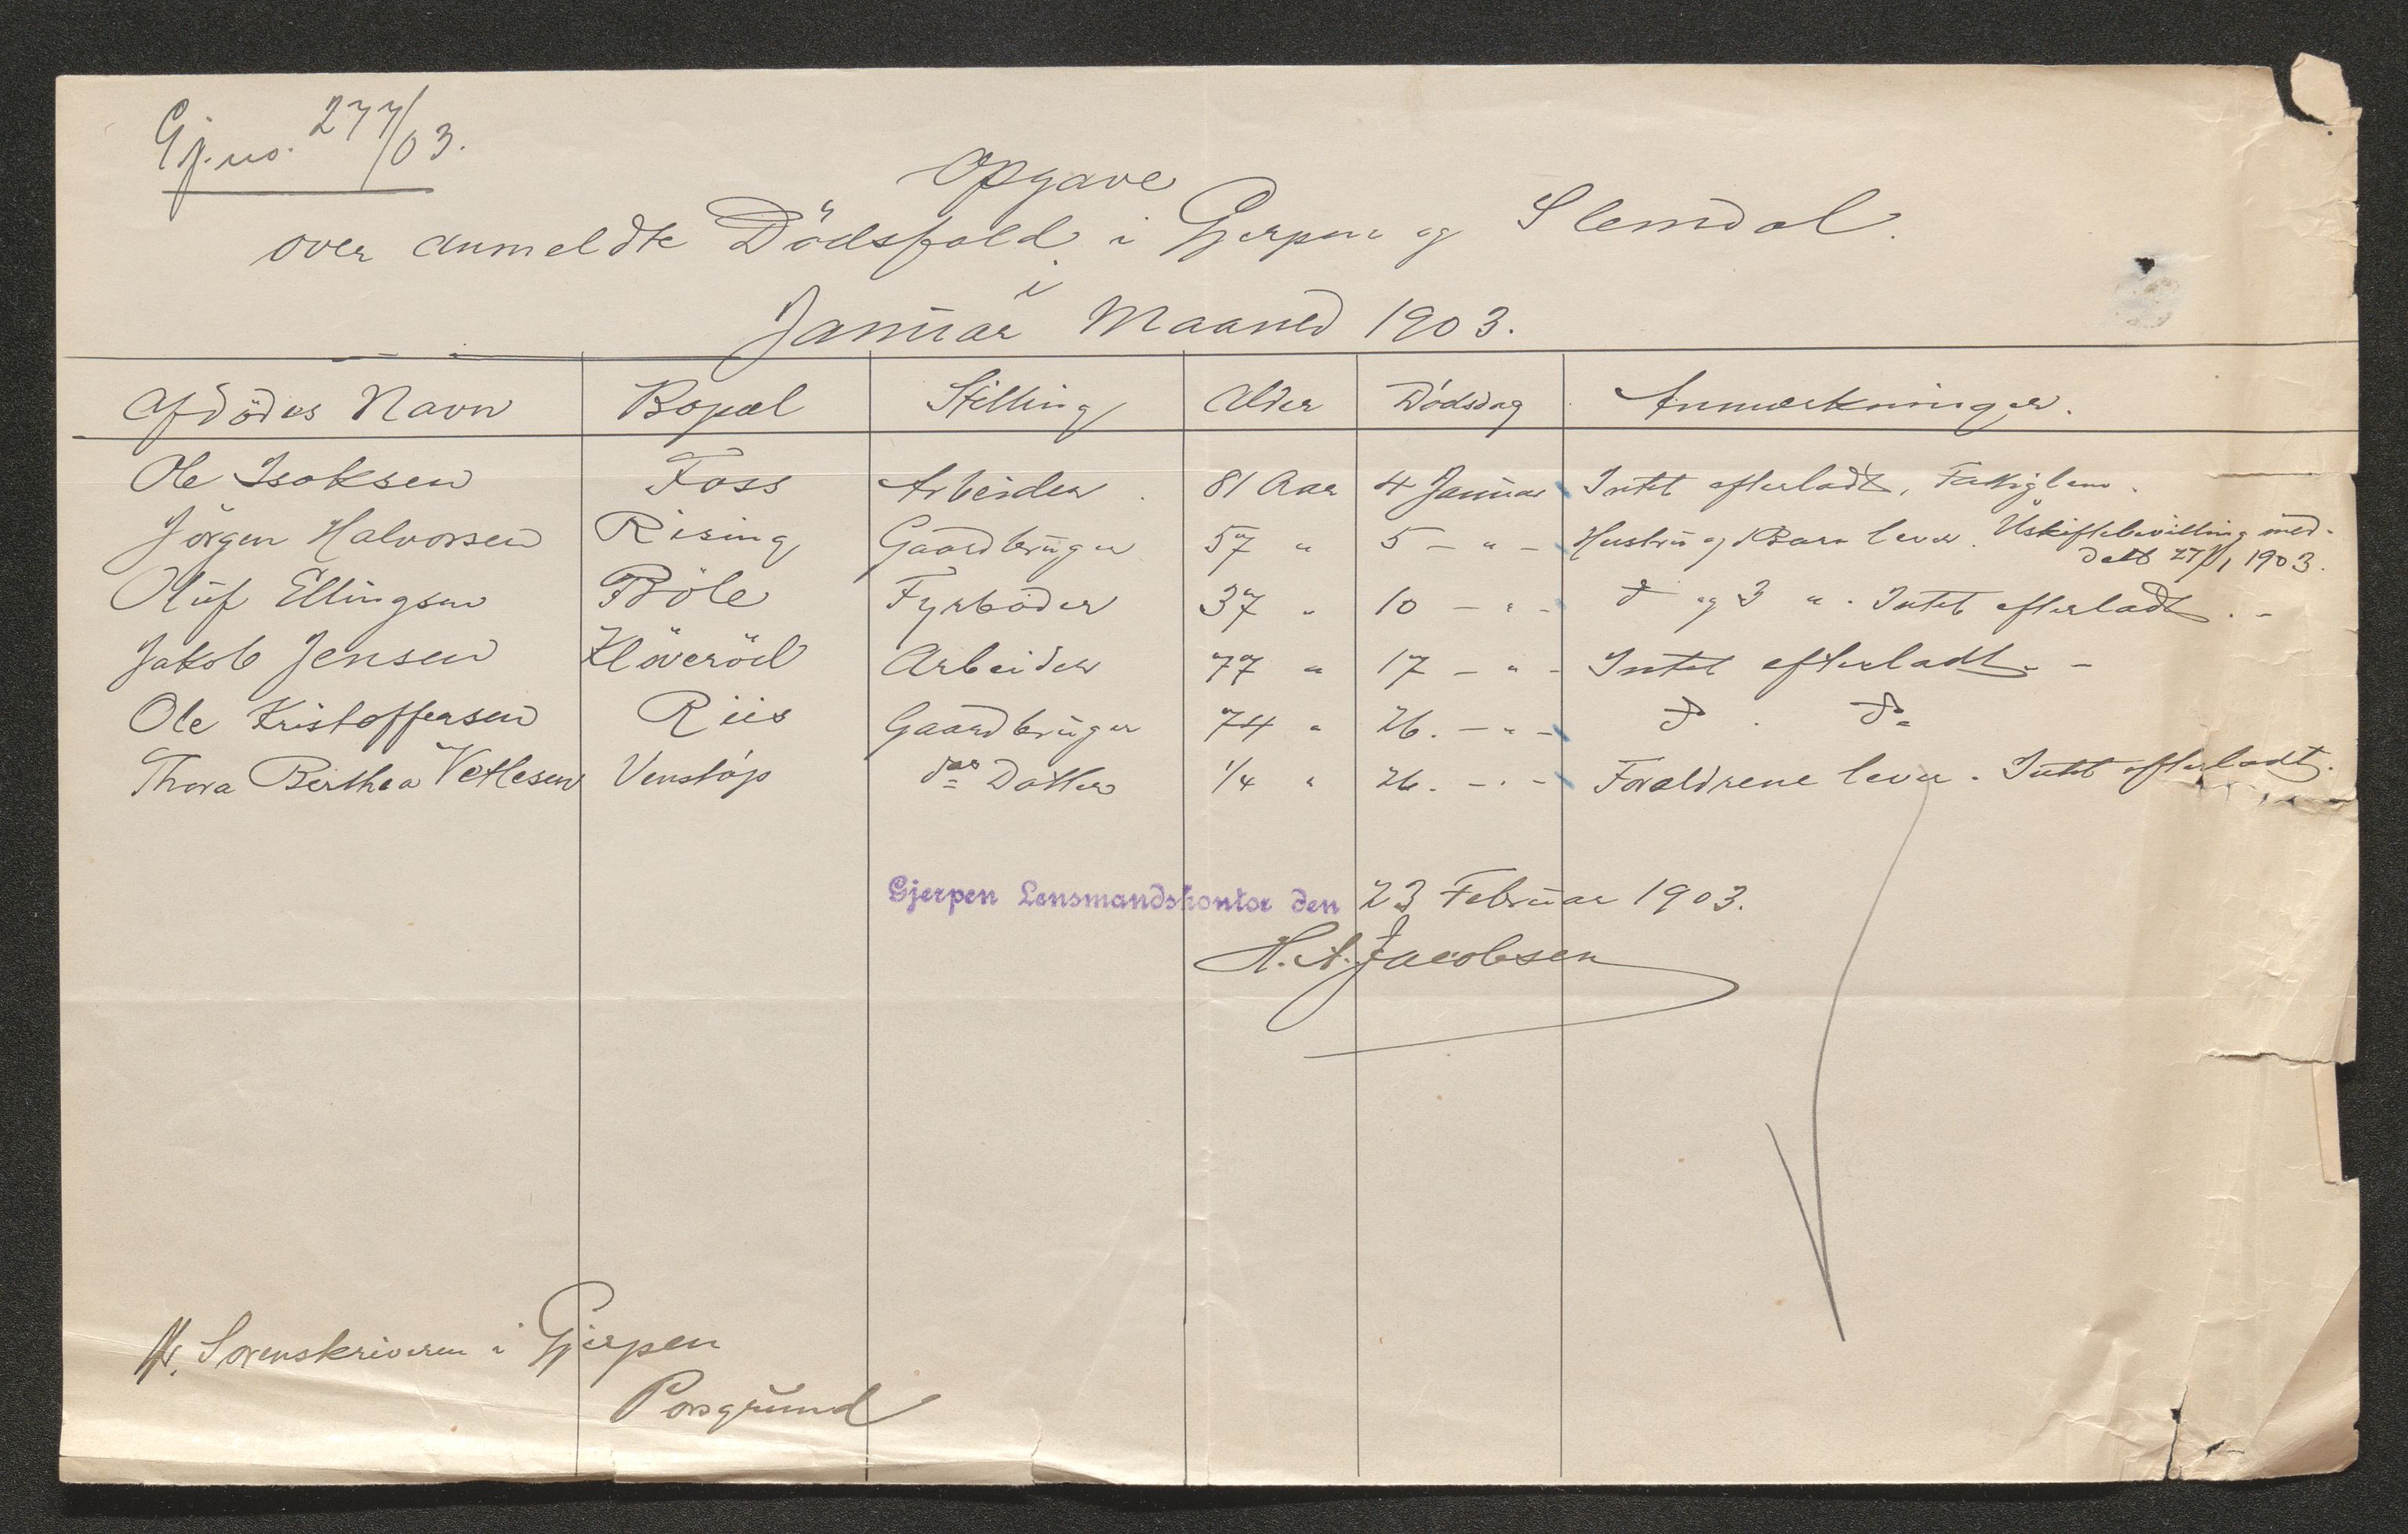 Gj.no. 277/03.
Opgave
over anmeldte Dödsfald i Gjerpen og Slemdal.
i
Januar Maaned 1903.
Afdödes Navn Bopæl Stilling Alder Dödsdag Anmærkninger.
Ole Isaksen Foss Arbeider. 81 Aar 4 Januar Intet efterladt, Fattiglem.
Jörgen Halvorsen Rising Gaardbruger 57 " 5 - " - Hustru og Barn lever. Uskiftebevilling med-
delt 27/1 1903.
Oluf Ellingsen Böle Fyrböder 37 " 10 - " - do og 3 " . Intet efterladt. -
Jakob Jensen Klöveröd Arbeider 77 " 17 - " - Intet efterladt. -
Ole Kristoffersen Riis Gaardbruger 74 " 26. - " - do . do
Thora Berthea Vetlesen Venstöp do Datter 1/4 " 26. - " - Forældrene lever. Intet efterladt.
Gjerpen Lensmandskontor den 23 Februar 1903.
H. A. Jacobsen
Hr. Sorenskriveren i Gjerpen
Porsgrund